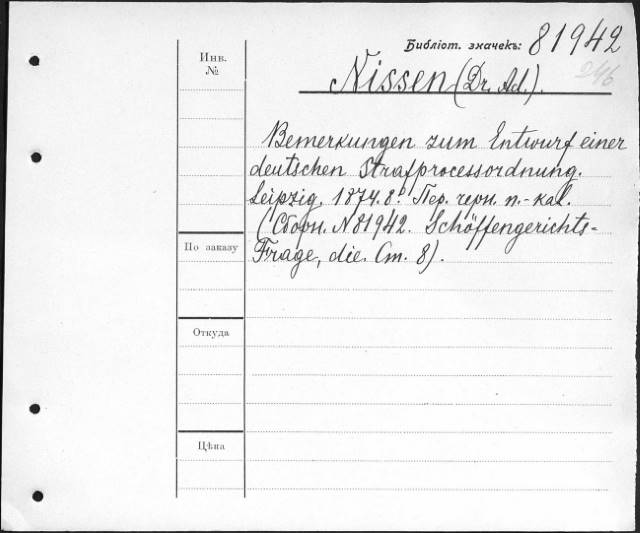 Библіот. значекъ: 81942
246
Инв.
№
Nissen (Dr. Ad.).
Bemerkungen zum Entwurf einer
deutschen Strafprocessordnung.
Leipzig, 1874. 8º. Пер. черн. п.-кал.
(Сборн. N 81942. Schöffengerichts-
Frage, die. Ст. 8).
По заказу
Откуда
Цѣна